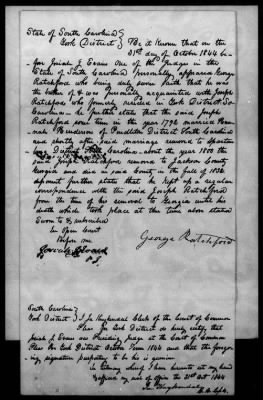 State of South Carolina }
York District } Be it Known that on the
31st day of October 1844 be-
for Josiah J Evans One of the Judges in the
State of South Carolina Personally appeared George
Ratchford who being duly sworn saith that he was
the brother of & was Personaly acquainted with Joseph
Ratchford who formerly resided in York District So.
Carolina — he further states that the said Joseph
Ratchford some time in the year 1792 married
Henderson of Pendleton District South Carolina
and shortly after said marriage removed to Spartan-
District South Carolina about the year 1808 the
said Joseph Ratchford removed to Jackson County
Georgia and died in said County in the fall of
deponent further states that he kept up a regular
correspondence with the said Joseph Ratchford
from the time of his removal to Georgia untill his
death which took place at the time above stated
Sworn to & subscribed
In Open Court
Before me
Josiah J Evans
George Ratchford
South Carolina }
York District } I Clerk of the Court of Common
Pleas for York District do hereby certify that
Josiah J. Evans was Presiding Judge at the Court of Common
Pleas for York District October Term 1844 and that the forego-
ing signature purporting to be his is genuine
In testimony whereof I have hereunto set my hand
& affixed my seal of office the 31st Oct. 1844